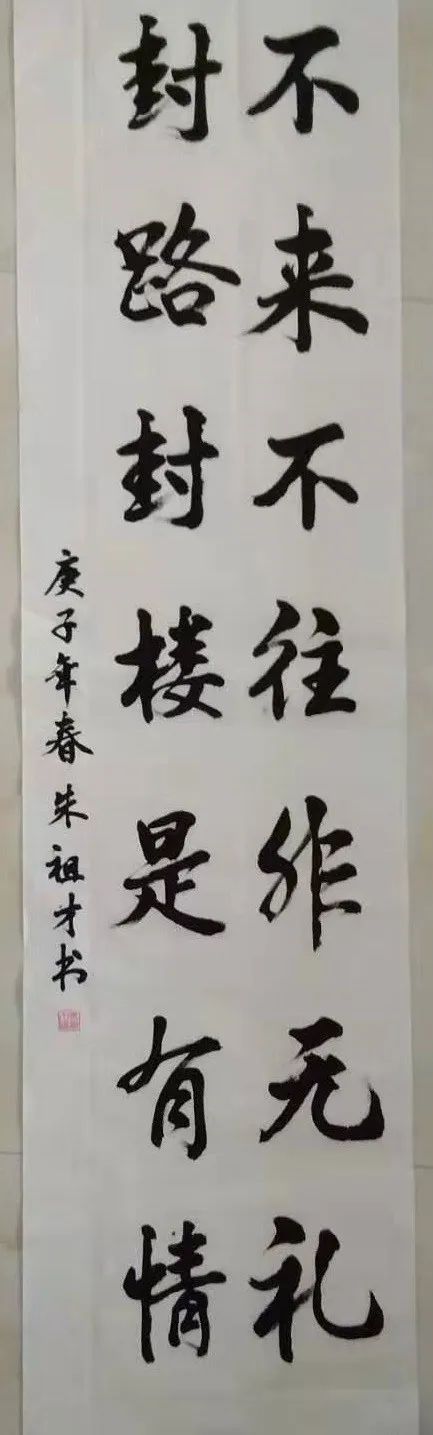 不来不往非无礼
封路封楼是有情
庚子年春朱祖才书